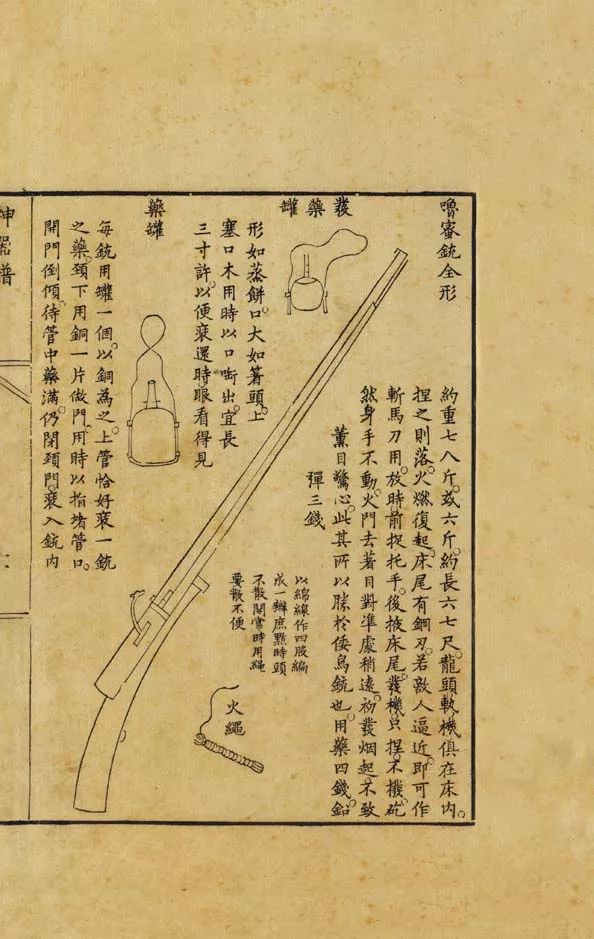 嚕密銃全形
約重七八斤。或六斤。約長六七尺。龍頭軌機俱在床内。
捏之則落。火燃復起。床尾有鋼刃。若敵人逼近。即可作
斬馬刀用。放時前捉托手。後掖床尾。發機只捏。不撥砣
然身手不動。火門去著目對準處稍遠。初發烟起。不致
薰目驚心。此其所以勝於倭鳥銃也。用藥四錢。鉛
彈三錢
以綿線作四股編
成一辮庶點時頭
不散開嘗時用繩
要散不便
火繩
發藥罐
形如蒸餅。口大如箸頭。上
塞口木用時以口啣出。宜長
三寸許。以便裝還時眼看得見
藥罐
每銃用罐一個。以銅為之。上管恰好裝一銃
之藥。頸下用銅一片做門。用時以指堵管口。
開門倒傾。待管中藥滿。仍閉頸門。裝入銃内
神器譜